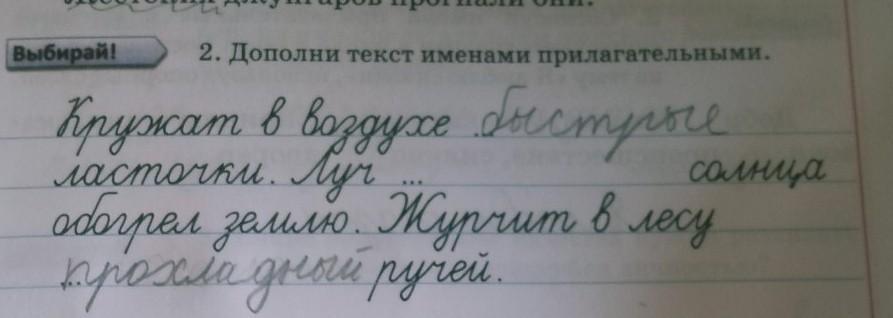 джунгаров прогнали они.
Выбирай! 2. Дополни текст именами прилагательными.
Кружат в воздухе быстрые
ласточки. Луч ... солнца
обогрел землю. Журчит в лесу
...прохладный ручей.